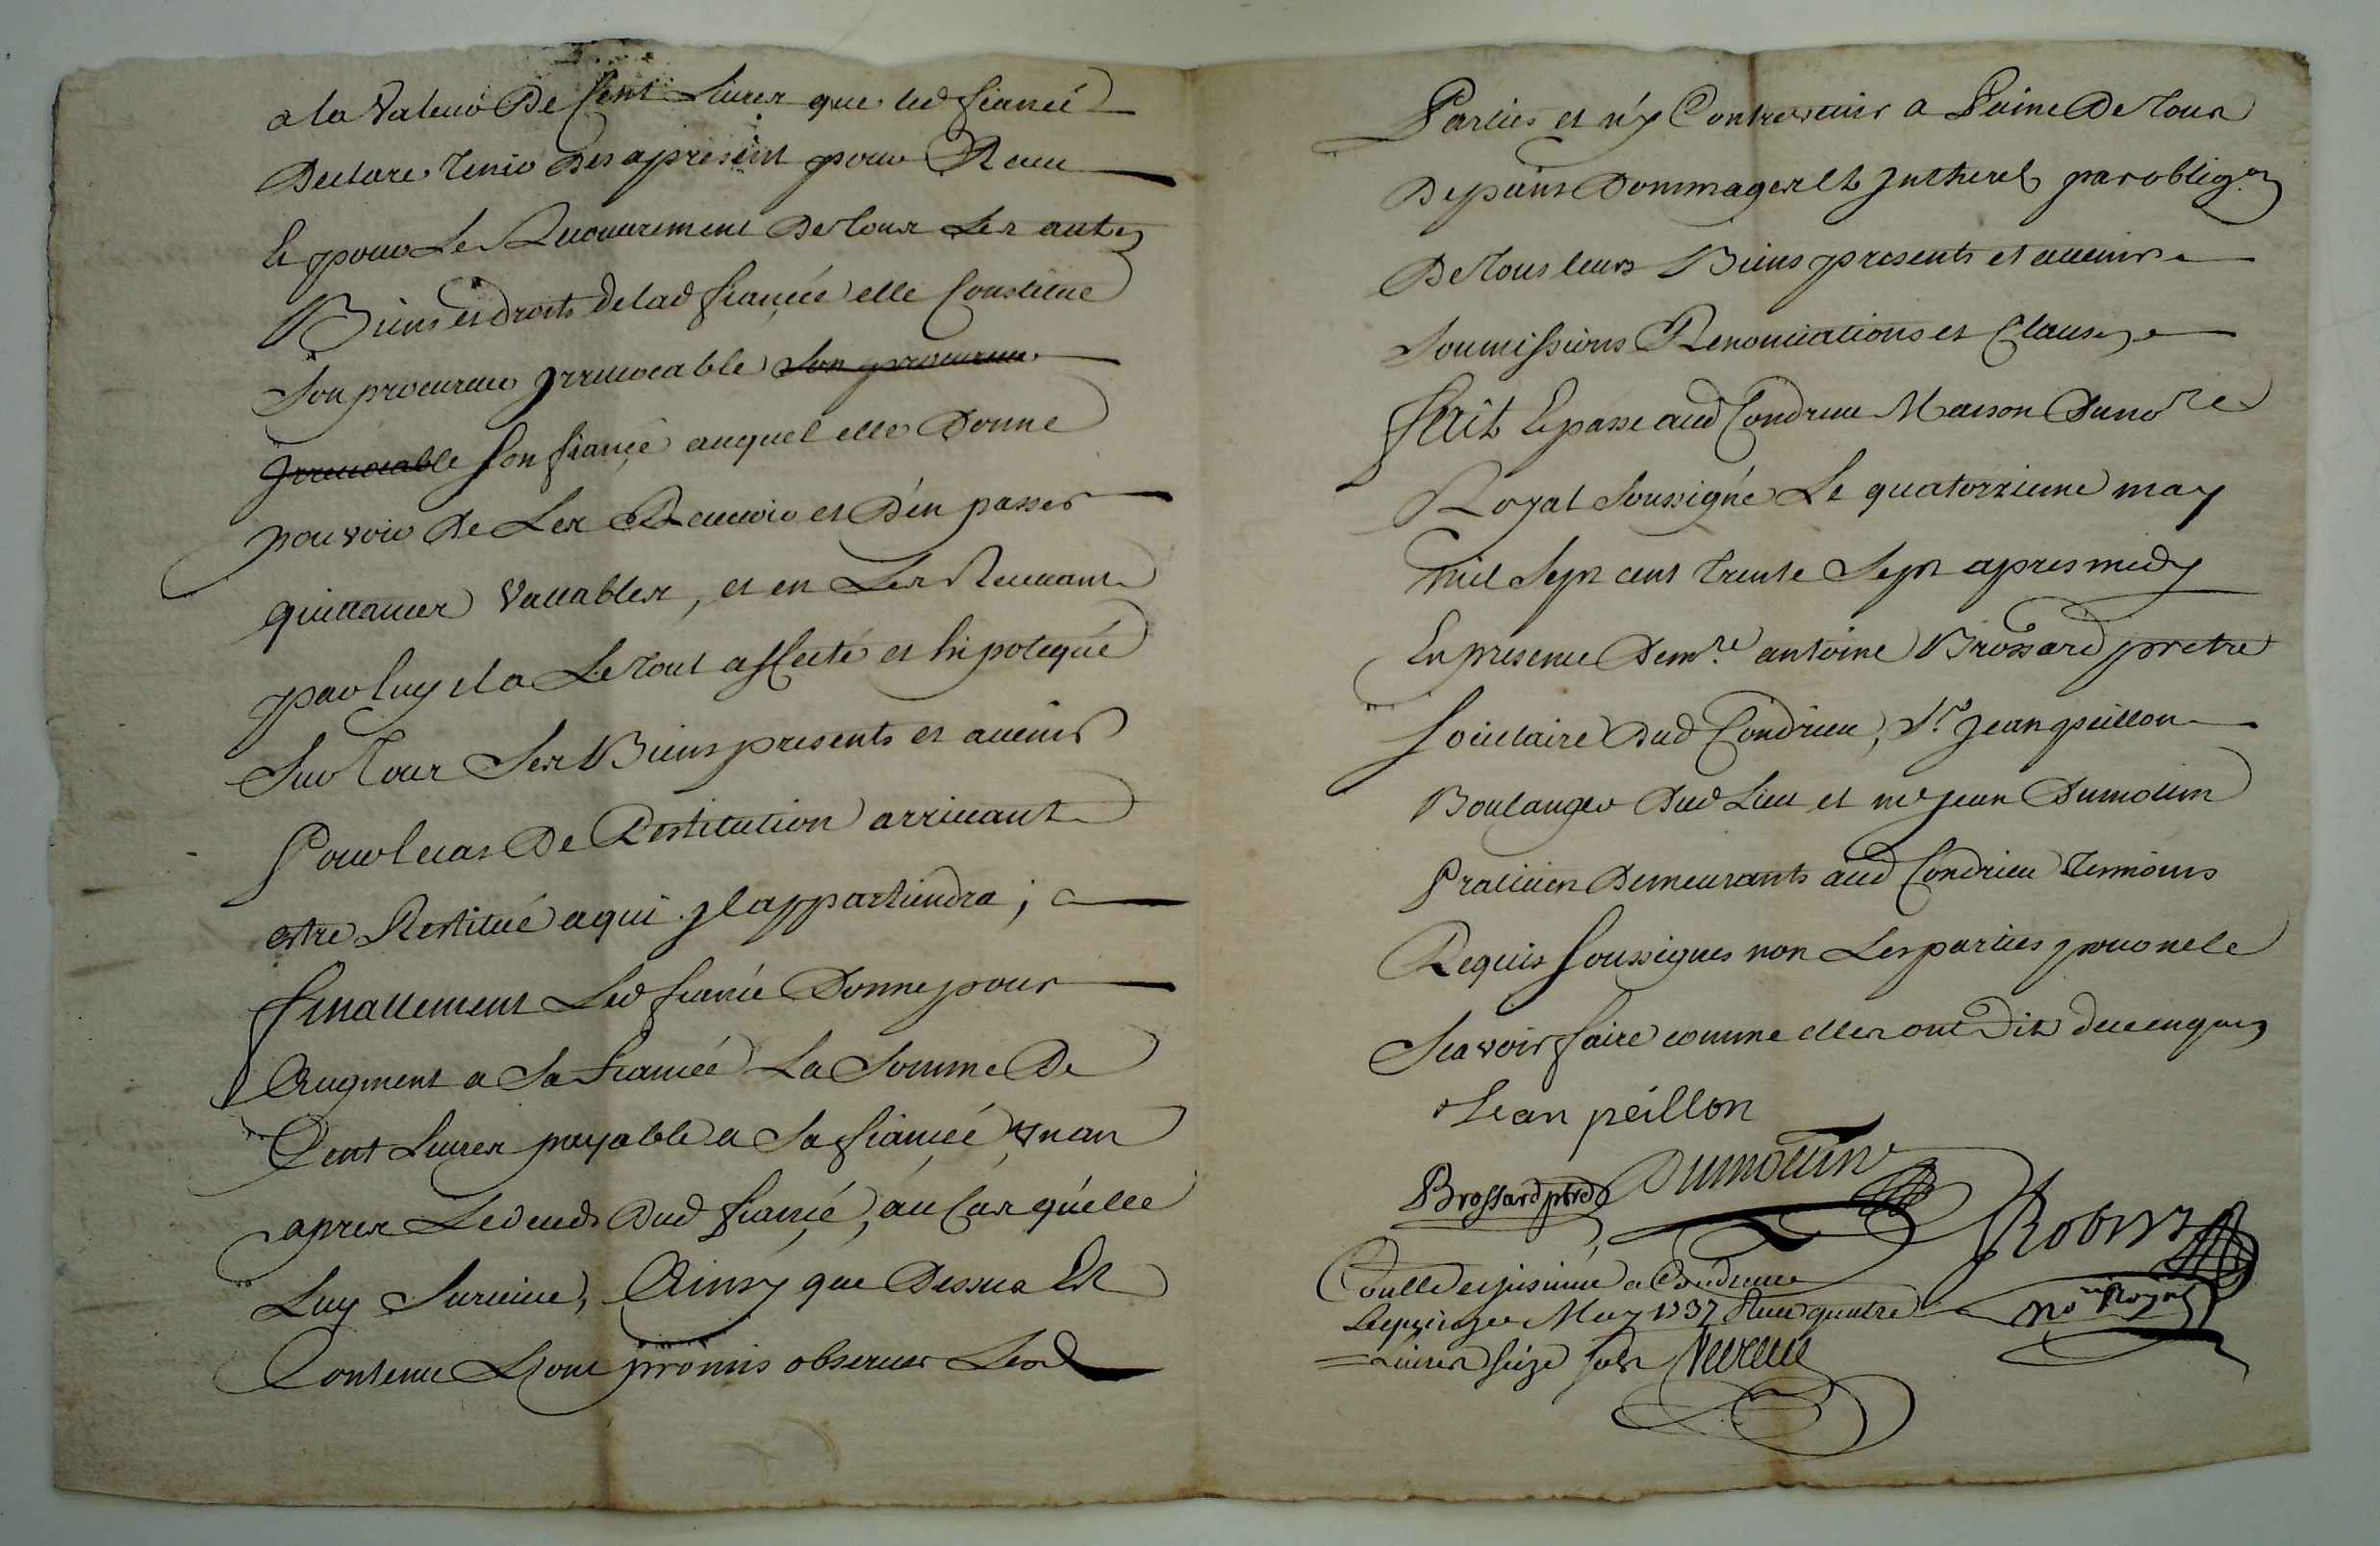 a la Valeur De Cent Livres que led fiancé
Declare tenir Des apresent pour Receu
Et pour Le Recouvrement De tous Les autes
Biens et droits delad fiancée elle Constitue
Son procureur Irrevocable Son procureur
Irrevocable Son fiancé auquel elle Donne
pouvoir de Les Recevoir et D'en passer
quittances Vallables, et en Les Recevant
par luy il a Le tout affecté et hipotequé
Sur tous Ses Biens presents et avenir
Pour le cas De Restitution arrivant
estre Restitué a qui Il appartiendra ;
finallement Led fiancé Donne pour
Augment a Sa fiancée La Somme De
Cent Livres payable a Sa fiancée un an
apres Le deceds Dud fiancé, au Cas qu'elle
Luy Survive, Ainsy que Dessus Est
Contenu L'ont promis observer Lesd
Parties et n'y Contrevenir a Paine De tous
Depains Dommages Et Intherets par obligon
De tous leurs Biens presents et avenir
Soumissions Renonciations et Clauses
fait Et passé aud Condrieu Maison Du nore
Royal Soussigné Le quatorzieme may
mil Sept cent trente Sept apres midy
En presence De mre antoine Brossard pretre
Socictaire Dud Condrieu, Sr. Jean peillon
Boulanger Dud Lieu et me jean Dumolim
Praticien Demeurants aud Condrieu temoins
Requis Soussignes non Les parties pour ne le
Scavoir faire comme elles ont Dit de ce enquis
Jean péillon
Brossard ptre Dumolin
Robin
Coullé et insinué a Condrieu
no re Royal
Le May 1737 Receu quatre
Livres seize sols